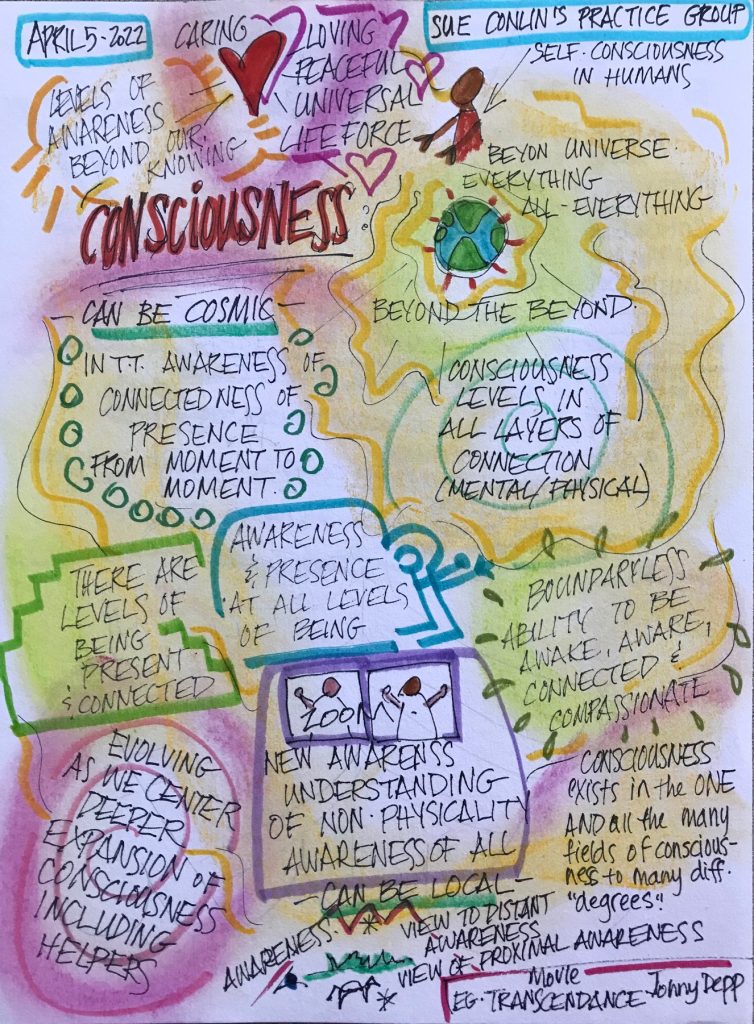 APRIL 5-2022
CARING
LOVING
PEACEFUL
UNIVERSAL
LIFE FORCE
SUE CONLIN'S PRACTICE GROUP
SELF-CONSCIOUSNESS
IN HUMANS
LEVELS OF
AWARENESS
BEYOND OUR
KNOWING
BEYON UNIVERSE.
EVERYTHING
ALL-EVERYTHING
CONSCIOUSNESS?
-CAN BE COSMIC-
BEYOND THE BEYOND.
IN T.T. AWARENESS OF
CONNECTEDNESS OF
PRESENCE
FROM MOMENT TO
MOMENT.
CONSCIOUSNESS
LEVELS IN
ALL LAYERS OF
CONNECTION
(MENTAL/PHYSICAL)
AWARENESS
& PRESENCE
AT ALL LEVELS
OF BEING
THERE ARE
LEVELS OF
BEING
PRESENT
& CONNECTED
BOUNDARYLESS
ABILITY TO BE
AWAKE, AWARE,
CONNECTED &
COMPASSIONATE
ZOOM
NEW AWARENSS
UNDERSTANDING
OF NON-PHYSICALITY
AWARENESS OF ALL
EVOLVING
AS WE CENTER
DEEPER
EXPANSION OF
CONSCIOUSNESS
INCLUDING
HELPERS
CONSCIOUSNESS
exists in the ONE
AND all the many
fields of conscious-
ness to many diff.
"degrees".
-CAN BE LOCAL-
AWARENESS:
* VIEW TO DISTANT
AWARENESS
* VIEW OF PROXIMAL AWARENESS
MOVIE
EG. TRANSCENDANCE-Johny Depp